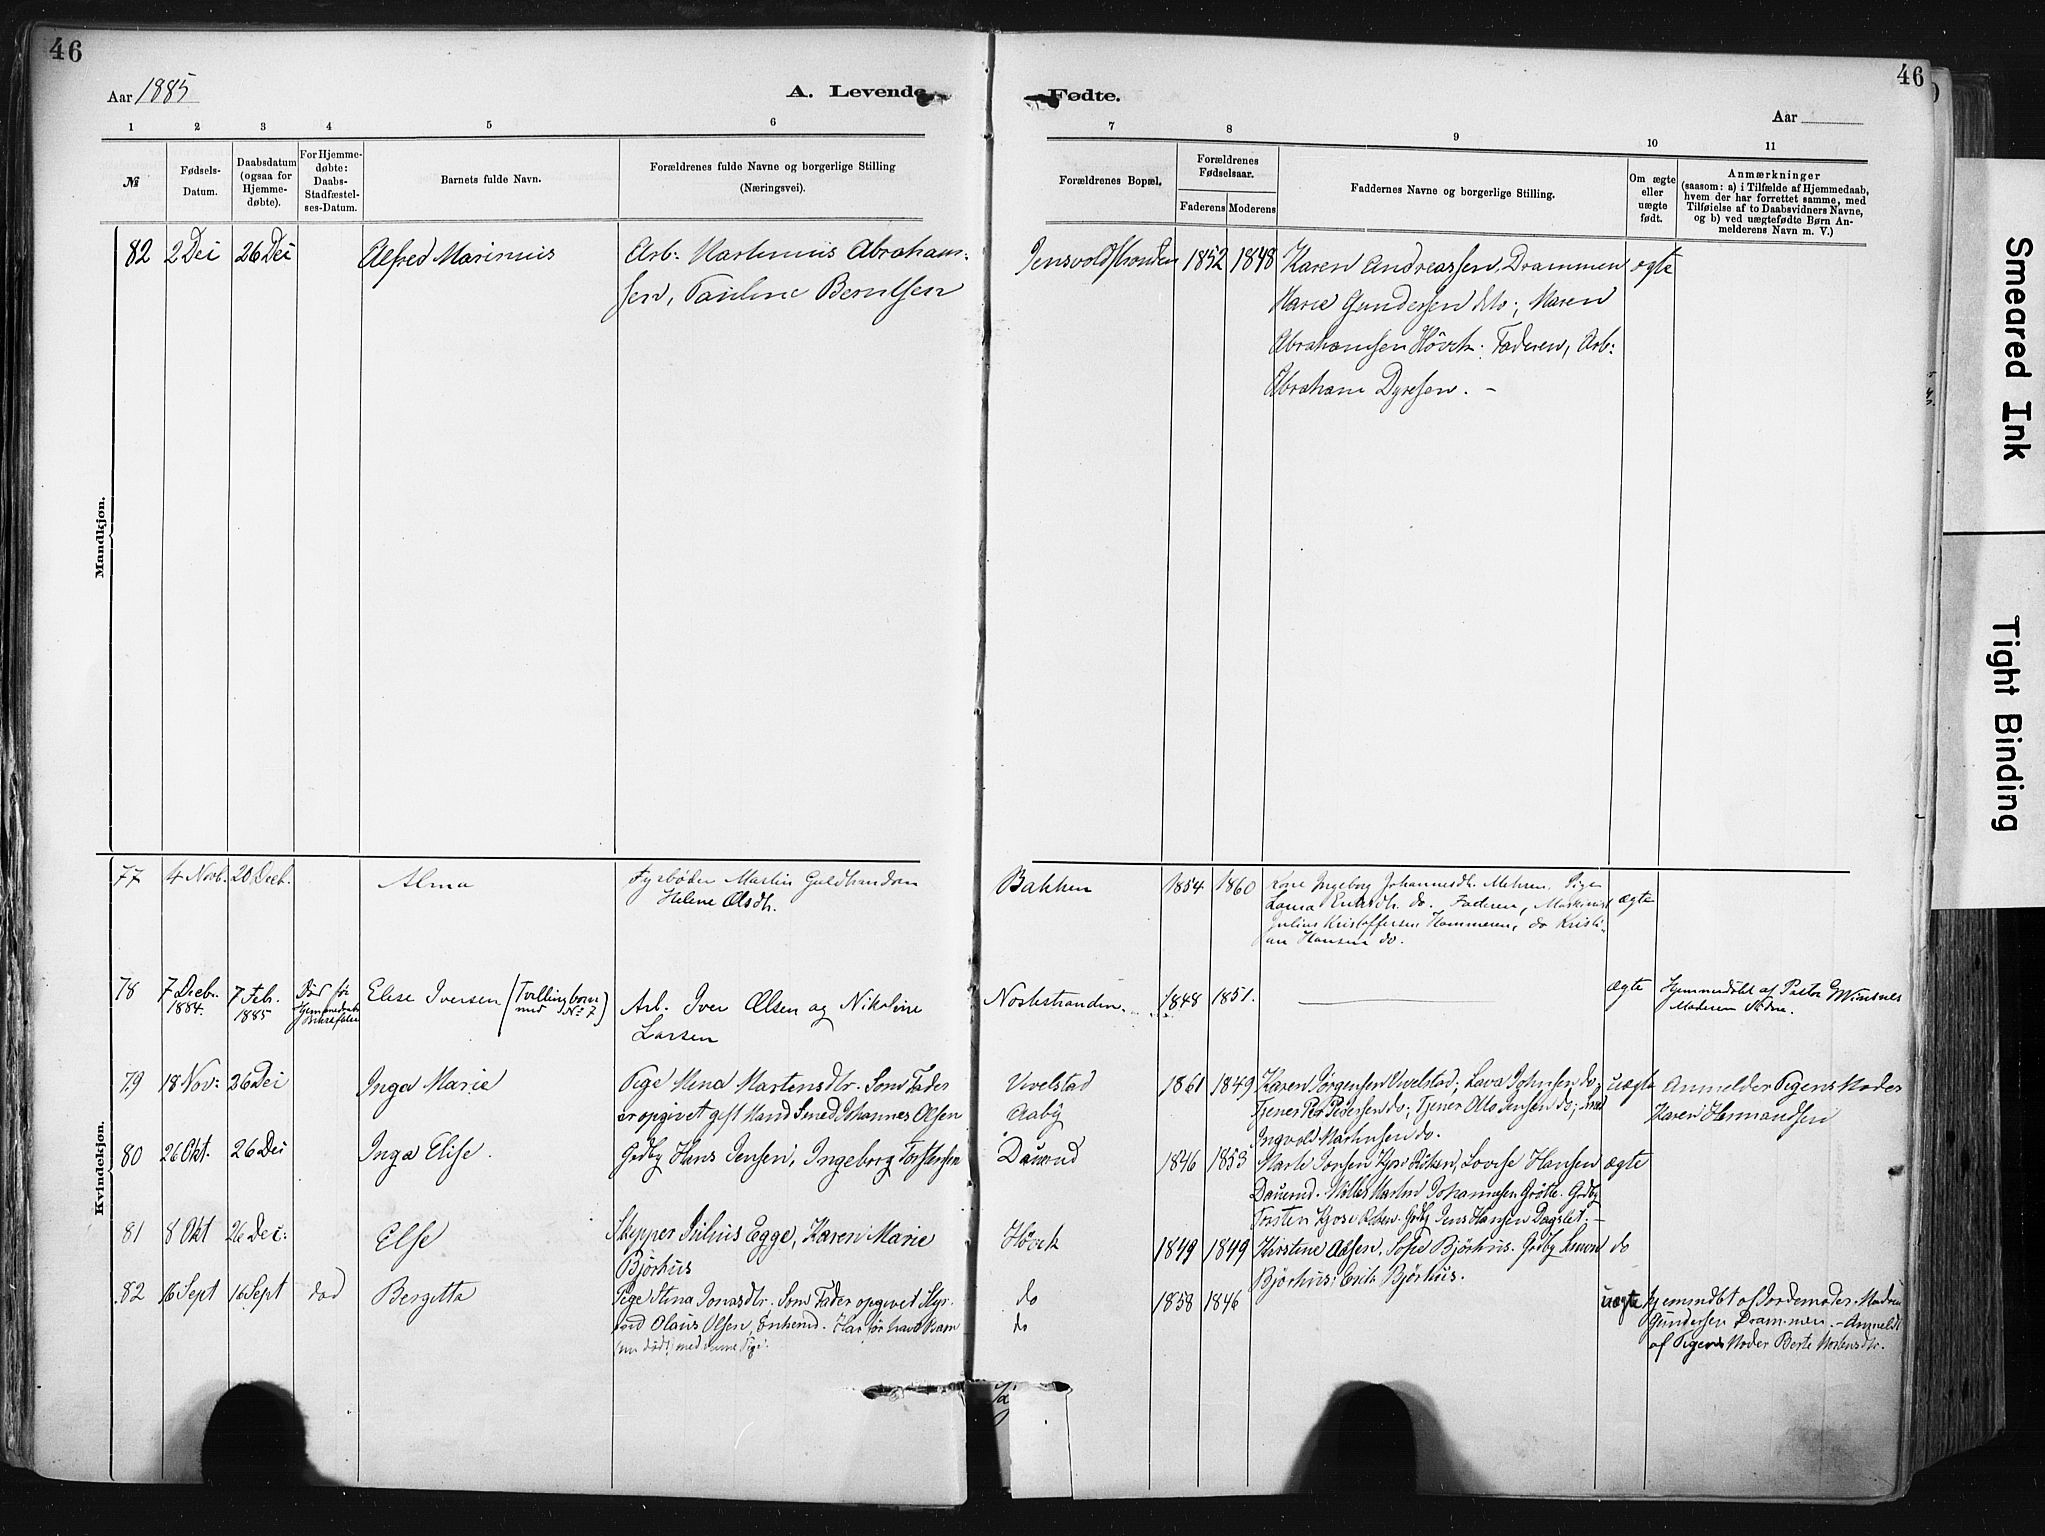 46
46
Aar 1885
A. Levende
Fødte.
Aar
1 2 3 4 5 6
7 8 9 10 11
№
Fødsels-
Datum.
Daabsdatum
(ogsaa for
Hjemme-
døbte).
For Hjemme-
døbte:
Daabs-
Stadfæstel-
ses-Datum.
Barnets fulde Navn.
Forældrenes fulde Navne og borgerlige Stilling
(Næringsvei).
Forældrenes Bopæl.
Forældrenes
Fødselsaar.
Faderens Moderens
Faddernes Navne og borgerlige Stilling.
Om ægte
eller
uægte
født.
Anmærkninger
(saasom: a) i Tilfælde af Hjemmedaab,
hvem der har forrettet samme, med
Tilføielse af to Daabsvidners Navne,
og b) ved uægtefødte Børn An-
melderens Navn m. V.)
Mandkjøn.
82 2 Dei 26 Dei Alfred Marinius Arb: Martinius Abraham-
sen, Pauline Berntsen
1852 1848 Karen Andreassen, Drammen ægte
Marie Gundersen do; Maren
Abrahamsen Høvik. Faderen, Arb:
Abraham Dyresen. –
Kvindekjøn.
77 4 Novb. 20 Decb. Alma Fyrbøder Martin Guldbrandsen
Helene Olsdtr. Bakken 1854. 1860 Kone Ingeborg Johannesdtr. Mehren, Pige
Laura do. Faderen, Maskinist ægte
Julius Kristoffersen Hammeren, do Kristi-
an Hansen do.
78 7 Decbr. 1884. 7 Feb. 1885 Død før Elise Iversen (Tvillingbarn
med No 7) Arb. Iver Olsen og Nikoline
Larsen
1848 1851. ægte Hjemmedøbt af Pastor
Moderen
79 18 Nov: 26 Dei Inga Marie Pige Mina Martensdtr. Som Fader
er opgivet gift Mand Smed Johannes Olsen
Vivelstad
Aaby
1861 1849 Karen Jørgensen Vivelstad; Lava Johnsen do; uægte Anmelder Pigens Moder
Tjener Per Pedersen do; Tjener Otto Jensen do; Karen Hermandsen
Ingvold Martinsen do.
80 26 Okt. 26 Dei Inga Elise. Grdby Hans Jensen, Ingeborg Torstensen Dauerud
1846 1853 Marte Jonsen Lovise Hansen ægte
Dauerud. Martin Johannesen Grøtte. Grdby
Torsten Grdby Jens Hansen Dagslet. –
81 8 Okt 26 Dei: Else Skipper Julius Egge, Karen Marie
Bjørhus Høvik
1849 1849 Kirstine Olsen, Sofie Bjørhus. Grdby do
Bjørhus; Erik Bjørhus.
82 16 Sept 16 Sept død Bergetta Pige Stina Jonasdtr. Som Fader opgivet Styr-
Olaus Olsen, Enkemd. Har før havt Barn
(nu dødt) med denne Pige.
do
do
1858 1846 uægte hjemmdbt af Jordemoder
Gundersen Drammen. – Anmeldt
af Pigens Moder Berte Mortensdtr.
Smeared Ink
Tight Binding